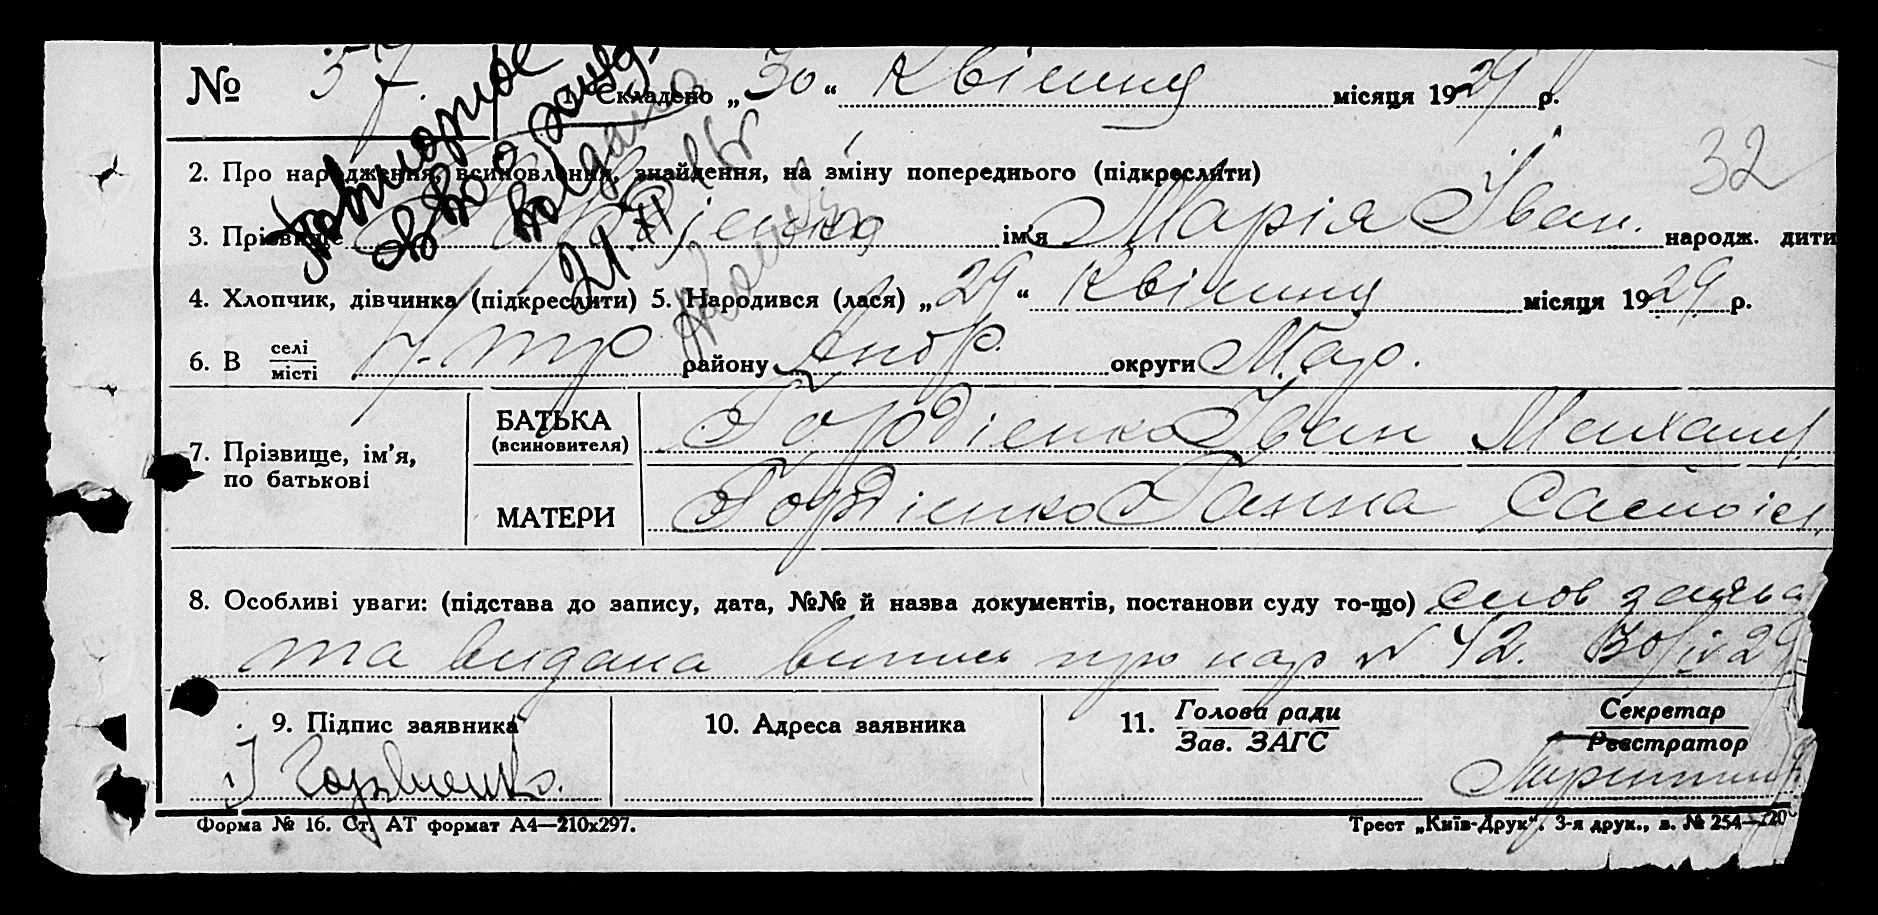 № 37. 1. Складено „30“ Квітня місяця 1929 р.
Повторное
св-во
выдано
21/XI
32
2. Про народження, всиновлення, знайдення, на зміну попереднього (підкреслити)
3. Прізвище Гордієнко ім'я Марія Іван. народж. дити
4. Хлопчик, дівчинка (підкреслити) 5. Народився (лася) „29“ Квітня місяця 1929 р.
6. В селі місті району Андр. округи Мар.
7. Прізвище, ім'я, по батькові
БАТЬКА (всиновителя) Гордієнко Іван
МАТЕРИ Гордієнко Ганна
8. Особливі уваги: (підстава до запису, дата, №№ й назва документів, постанови суду то-що) слов заява
та видана випись про нар № 42. 30/IV 29
9. Підпис заявника 10. Адреса заявника 11. Голова ради Секретар
Зав. ЗАГС Реєстратор
І Гордиенко.
Форма № 16. Ст. АТ формат А4—210х297. Трест „Київ-Друк“. 3-я друк., в. № 254—